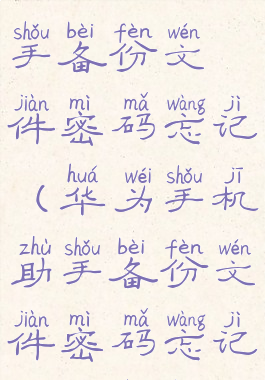 shǒu bèi fèn wén
手备份文
jiàn mì mǎ wàng jì
件密码忘记
huá wéi shǒu jī
（华为手机
zhù shǒu bèi fèn wén
助手备份文
jiàn mì mǎ wàng jì
件密码忘记